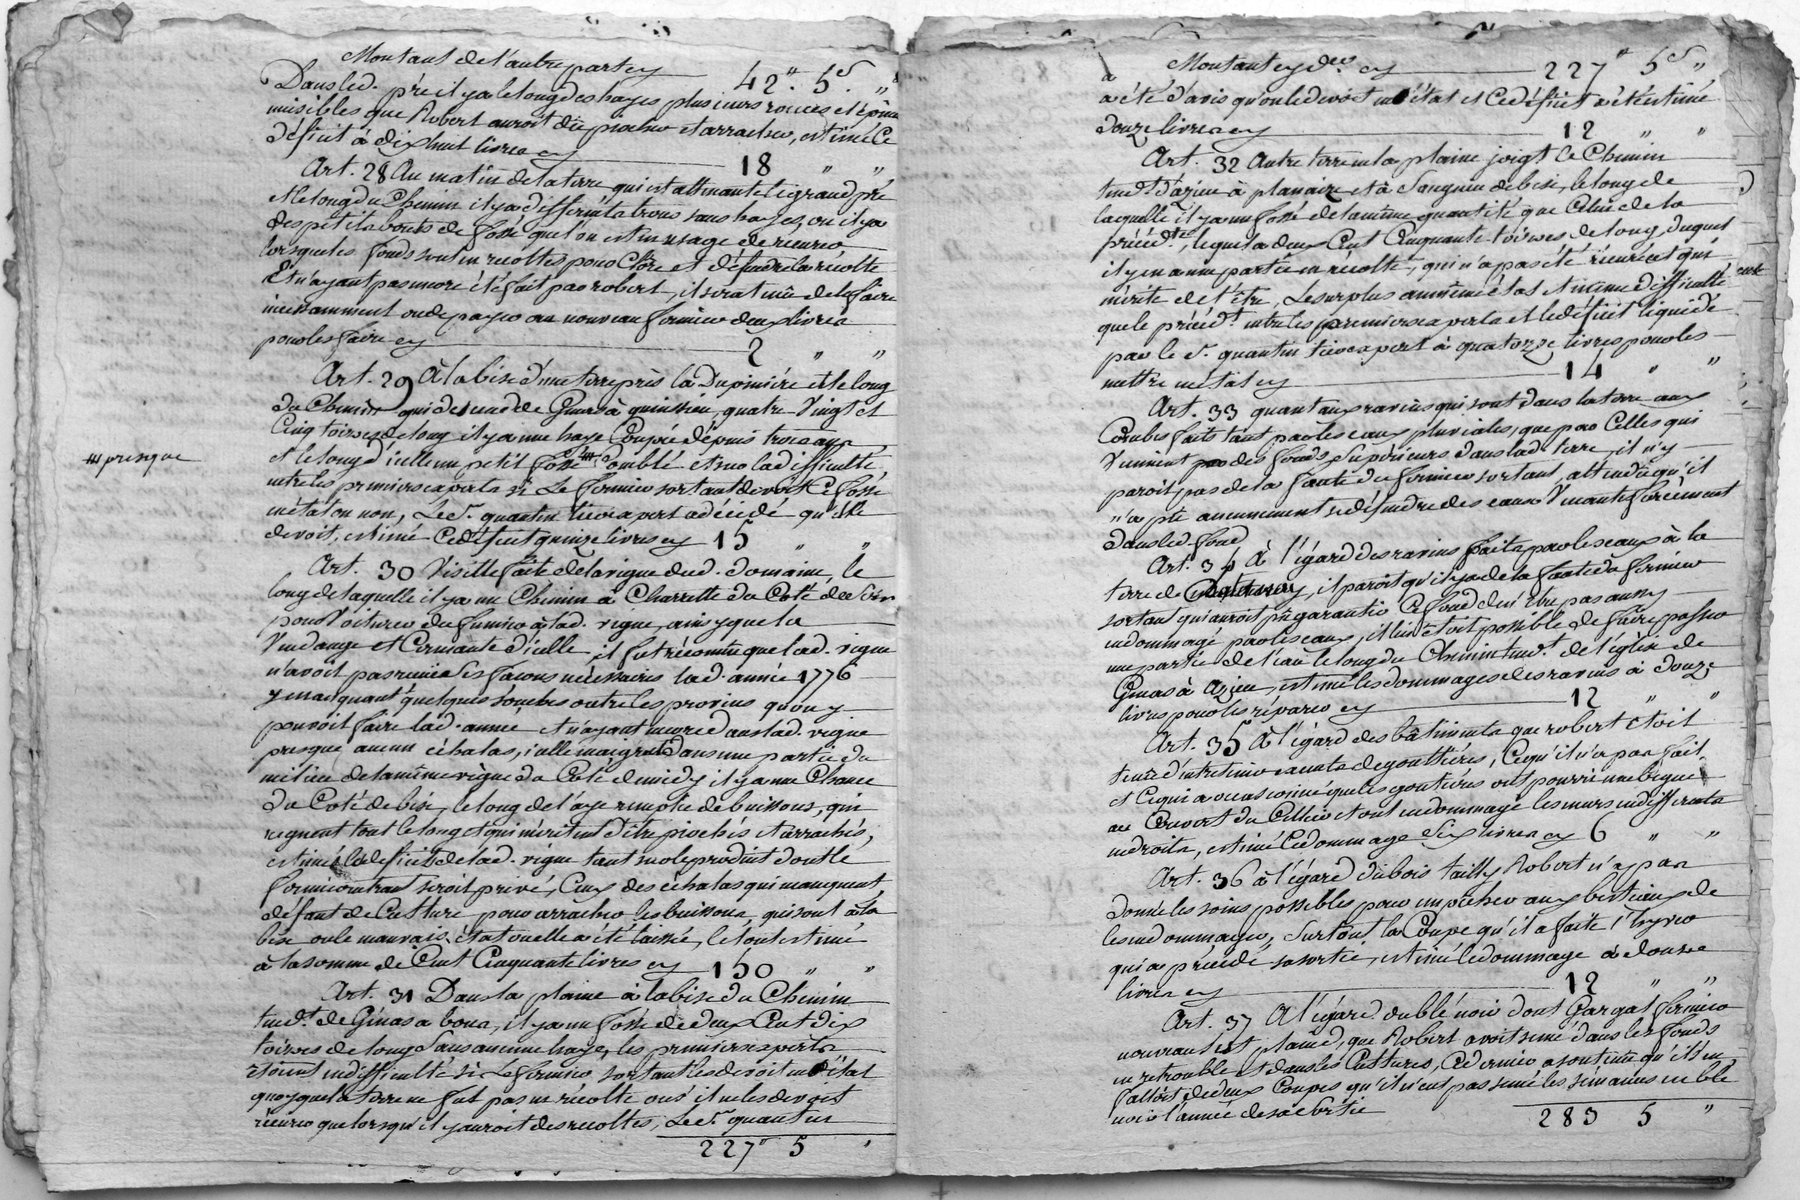 Montant de l'autre part cy 42" 5s "
Dans led. pré il y a le long des hayes plusieurs ronces et épines
nuisibles que Robert auroit dû piocher et arracher, estimé ce
déficit à dix huit livres cy 18 " "
Art. 28 Au matin de la terre qui est attenante le grand pré
et le long du Chemin il y a différents trous sans hayes, ou il y a
des petits bouts de fossé que l'on est en usage de récurer
lorsque les fonds sont en récoltes pour clore et défendre la récolte
Et n'ayant pas encore été fait par robert, il sera tenu de le faire
incessamment ou de payer au nouveau fermier deux livres
pour les faire cy 2 " "
Art. 29 à la bise d'une terre près la Dupinière et le long
du Chemin qui descend de Genas à quinssieu, quatre Vingt et
Cinq toises de long il y a une haye Coupée depuis trois ans
et le long d'icelle un petit fossé # Comblé et sur la difficulté,
# presque
entre les premiers experts si Le fermier sortant devoit Ce fossé
en état ou non, Le Sr. quantin tiers expert a décidé qu'il le
devoit, estimé Ce déficit quinze livres cy 15 " "
Art. 30 Visitte faite de la vigne dud. domaine, le
long de laquelle il y a un Chemin à Charrette du Coté de Soir
pour Voiturer du fumier à lad. vigne, ainsy que la
Vendange et Serment d'icelle, il fut reconnu que lad. vigne
n'avoit pas reçu ses façons nécessaires lad. année 1776
y manquant quelques sombres outre les provins qu'on y
pouvoit faire lad. année et n'ayant encore dans lad. vigne
presque aucun échalas, icelle maigre dans une partie du
milieu de la même vigne du Coté de midy il y a une
du Coté de bise, le long de l'aye remplie de buissons, qui
regnent tout le long et qui méritent d'être piochés et arrachés,
estimé le déficit de lad. vigne tant sur le produit dont le
fermier entrant seroit privé, Ceux des échalas qui manquent,
défaut de Culture pour arracher les buissons, qui sont à la
bise ou le mauvais état ou elle a été laissée, le tout estimé
à la somme de Cent Cinquante livres cy 150 " "
Art. 31 Dans la plaine à la bise du Chemin
tend.t de Genas a bour, il y a un fossé de deux Cent dix
toises de long sans aucune haye, les premiers experts
étoient en difficulté si Le fermier sortant les devoit en état
quoyque la terre ne fut pas en récolte ou s'il ne les devoit
récurer que lorsqu'il y auroit des récoltes, Le Sr. quantin
227" 5 "
Montant cy der. cy 227" 5s "
a
a été d'avis qu'on le devoit en état et ce déficit a été estimé
douze livres cy 12 " "
Art. 32 Autre terre en la plaine joigt le Chemin
tend.t d'azieu à planaize et à Sangneu de bise, le long de
laquelle il y a un fossé de la même quantité que Celui de la
précéd.te, lequel a deux Cent Cinquante toises de long duquel
il y en a une partie en récolte, qui n'a pas été récurée et qui
mérite de l'être, Le surplus au même état et même difficulté
que le précéd.t entre les premiers experts et le déficit liquidé
par le Sr. quantin tiers expert à quatorze livres pour les
mettre en état cy 14 " "
Art. 33 quant aux ravins qui sont dans la terre aux
Combes faits tant par les eaux pluviales, que par Celles qui
Viennent des fonds Supérieurs dans lad. terre, il n'y
paroit pas de la faute du fermier sortant, attendu qu'il
n'a pû aucunement se défendre des eaux Venants forcément
dans led. fond
Art. 34 à l'égard des ravins faits par les eaux à la
terre de , il paroit qu'il y a de la faute du fermier
sortant qui auroit pû garantir Ce fond de n'être pas aussy
endommagé par les eaux, il lui étoit possible de faire passer
une partie de l'eau le long du Chemin tend.t de l'église de
Genas à Azieu, estimé les dommages des ravins à douze
livres pour les réparer cy 12 " "
Art. 35 à l'égard des bâtiments que robert étoit
tenu d'entretenir exempts de gouttières, Ce qu'il n'a pas fait
et Ce qui a occasionné que les goutières ont pourri une bigue
au Couvert du Cellier et ont endommagé les murs en différents
endroits, estimé Ce dommage Six livres cy 6 " "
Art. 36 à l'égard du bois tailly Robert n'a pas
donné les soins possibles pour empêcher aux bestiaux de
les endommager, Surtout la Coupe qu'il a faite l'hyver
qui a précédé sa sortie, estimé le dommage à douze
livres cy 12 " "
Art. 37 A l'égard du blé noir dont Gargat fermier
nouveau s'est plaind, que Robert avoit semé dans les fonds
en retrouble et dans les Cultures, Ce dernier a soutenu qu'il s'en
falloit de deux Coupes qu'il n'eut pas semé les sémaines en blé
noir l'année de sa sortie
283 5 "